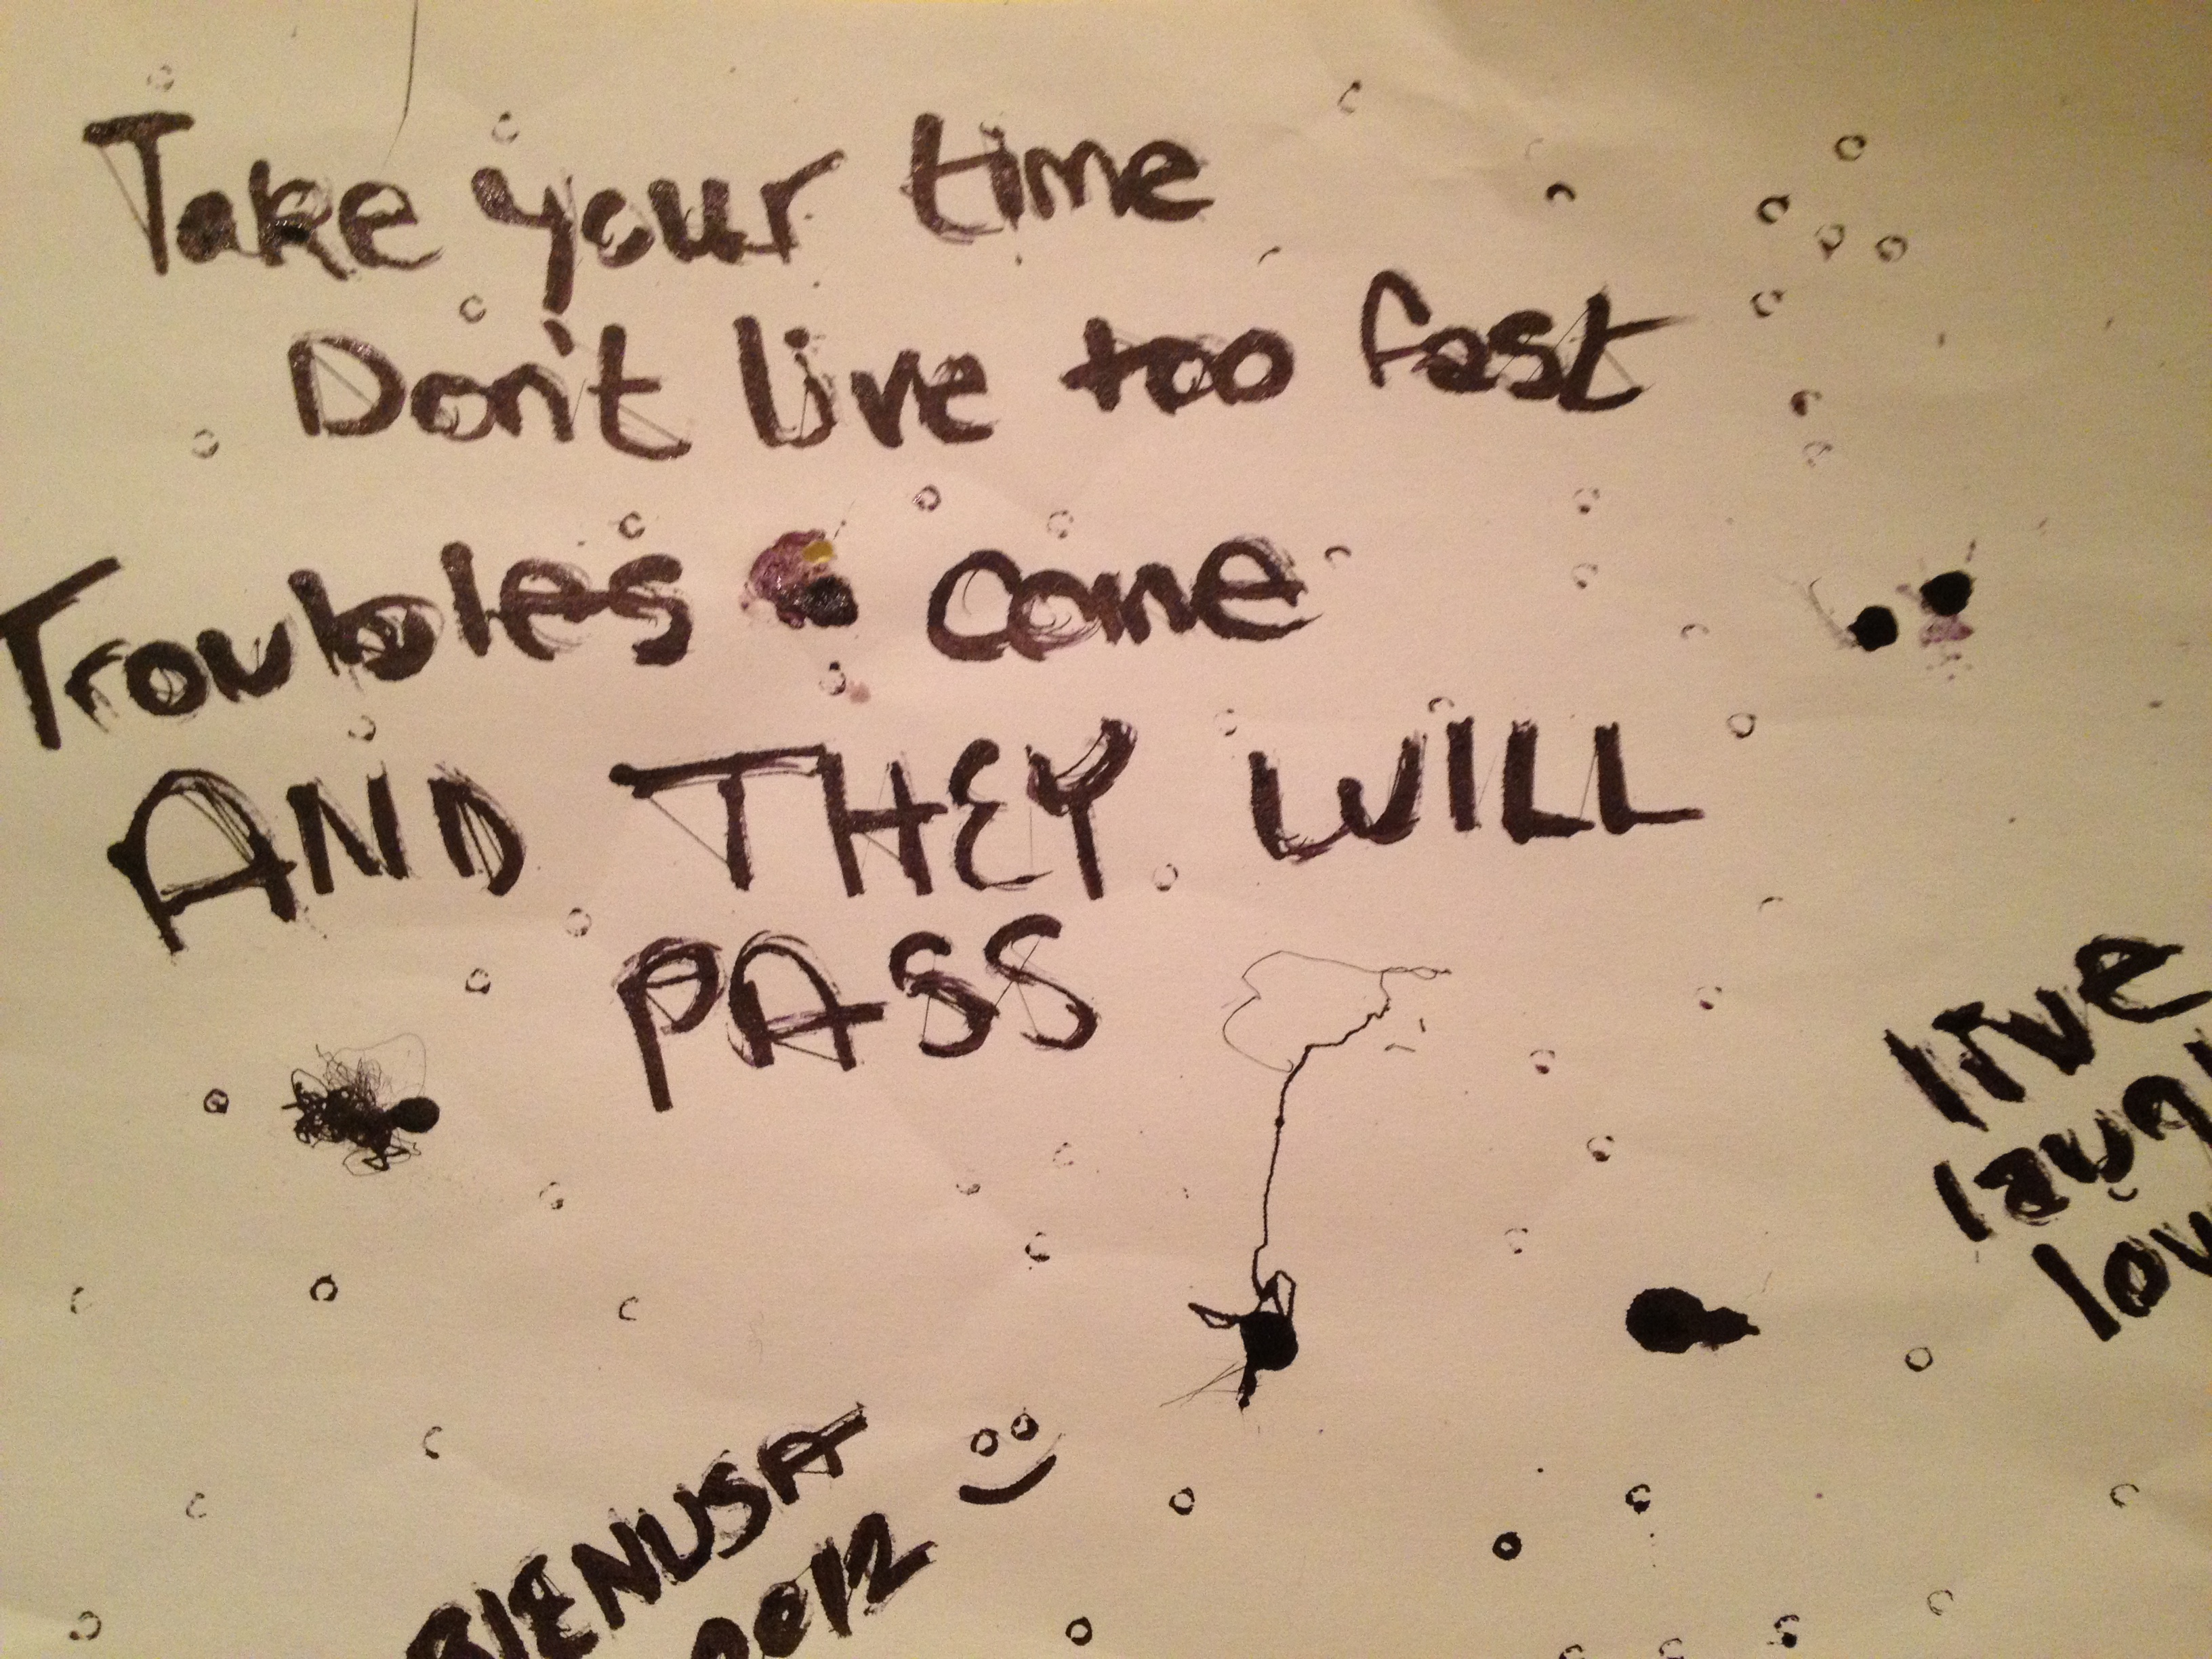 Take your time
Don't live too fast
Troubles come
AND THEY WILL
PASS
live
laugh
BIENUSA
2012